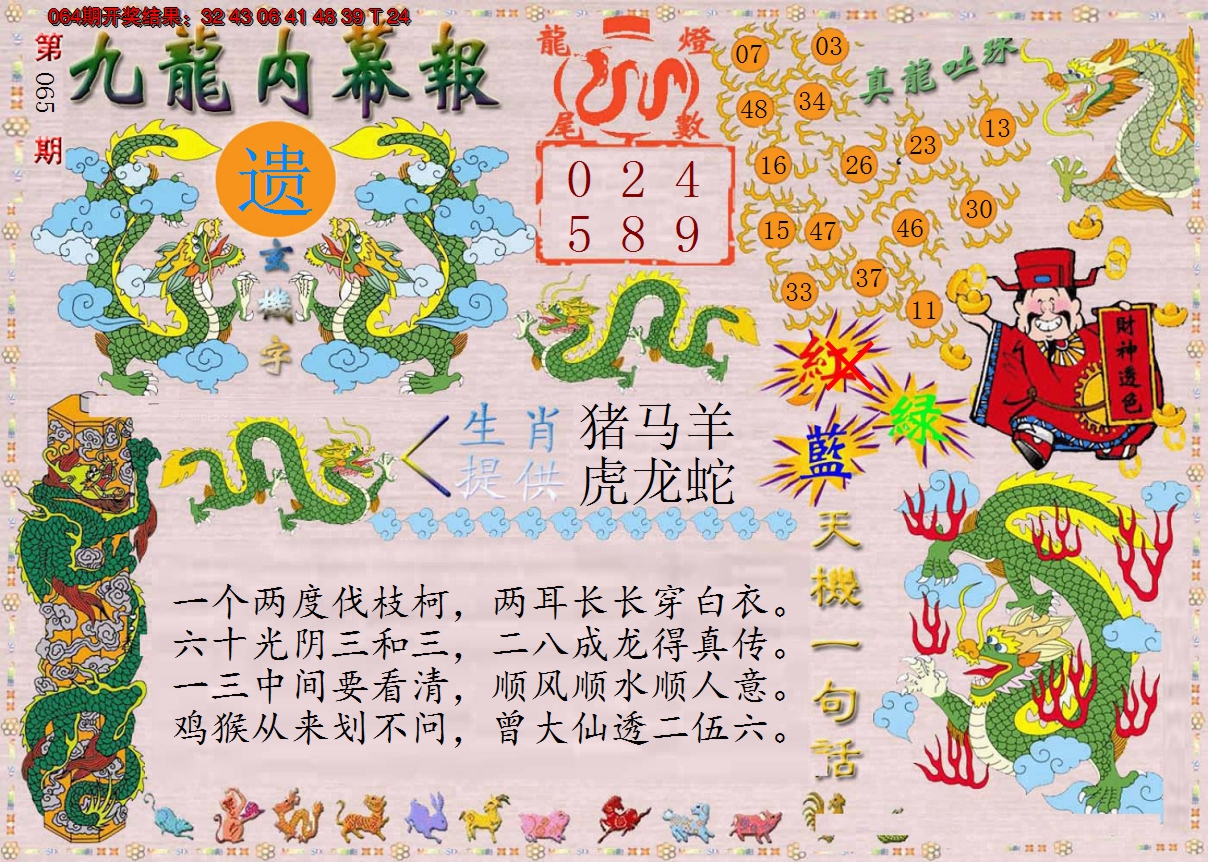 064期开奖结果：32 43 06 41 48 39 T 24
第065期
九龍内幕報
遗
玄機字
龍燈尾數
0 2 4
5 8 9
真龍吐珠
07 03
48 34
16 26 23 13
15 47 46 30
33 37 11
財神透色
紅
綠
藍
生肖提供
猪马羊
虎龙蛇
天機一句话
一个两度伐枝柯，两耳长长穿白衣。
六十光阴三和三，二八成龙得真传。
一三中间要看清，顺风顺水顺人意。
鸡猴从来划不问，曾大仙透二伍六。